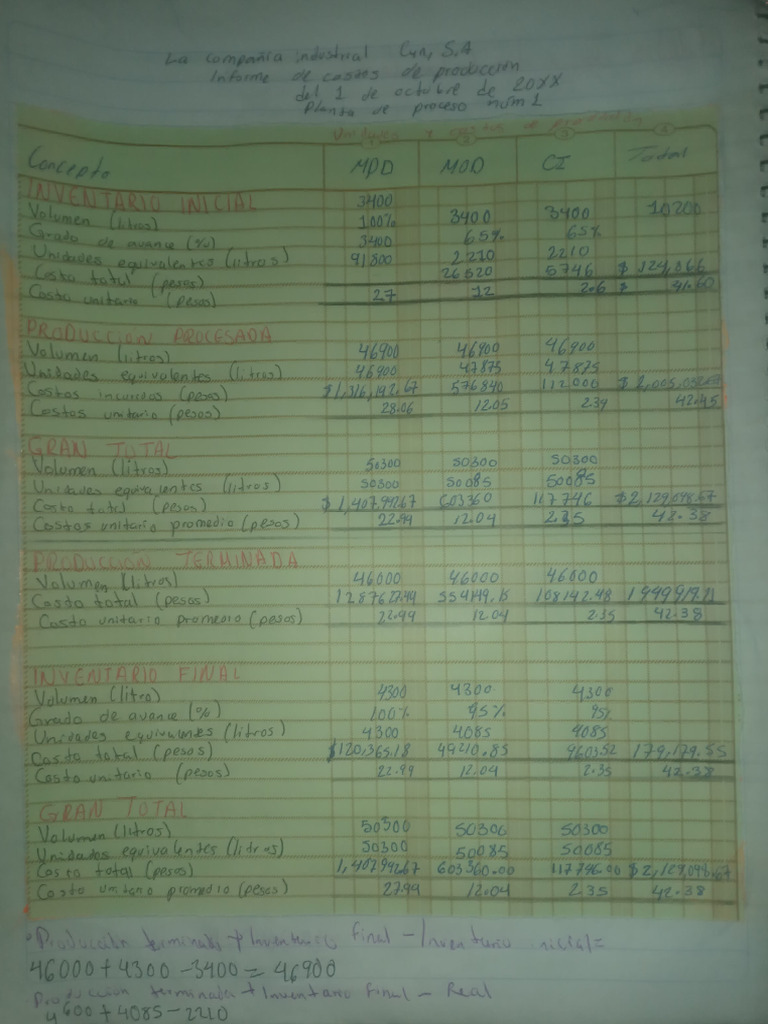 La compañia industrial Cyn, S.A
Informe de costos de producción
del 1 de octubre de 20XX
Planta de proceso num 1
Concepto MPD MOD CI
INVENTARIO INICIAL 3400
Volumen (litros) 100% 3400 3400 10200
Grado de avance (%) 3400 65% 65%
Unidades equivalentes (litros) 91800 2210 2210
Costo total (pesos) 26520 5746 $ 124,066
Costo unitario (pesos) 27 12 2.6 $ 41.60
PRODUCCION PROCESADA
Volumen (litros) 46900 46900 46900
Unidades equivalentes (litros) 46900 47875 47875
Costos incurridos (pesos) $1,316,192.67 576840 112000
Costos unitario (pesos) 28.06 12.05 2.34 42.45
GRAN TOTAL
Volumen (litros) 50300 50300 50300
Unidades equivalentes (litros) 50300 50085 50085
Costo total (pesos) 603360 117746 $2,129,098.67
Costos unitario promedio (pesos) 12.04 2.35 42.38
PRODUCCION TERMINADA
Volumen (litros) 46000 46000 46000
Costo total (pesos) 554149.15 108142.48
Costo unitario promedio (pesos) 12.04 2.35 42.38
INVENTARIO FINAL
Volumen (litro) 4300 4300 4300
Grado de avance (%) 100% 95% 95%
Unidades equivalentes (litros) 4300 4085 4085
Costo total (pesos) $120,365.18 49210.85 9603.52 179,179.55
Costo unitario (pesos) 12.04 2.35 42.38
GRAN TOTAL
Volumen (litros) 50300 50300 50300
Unidados equivalentes (litros) 50300 50085 50085
Costo total (pesos) 603360.00 117746.00 $2,129,098.67
Costo unitario promedio (pesos) 27.99 12.04 2.35 42.38
Producción terminada + Inventario final - Inventario inicial =
46000 + 4300 - 3400 = 46900
Producción terminada + Inventario final - Real
+ 4085 - 2210